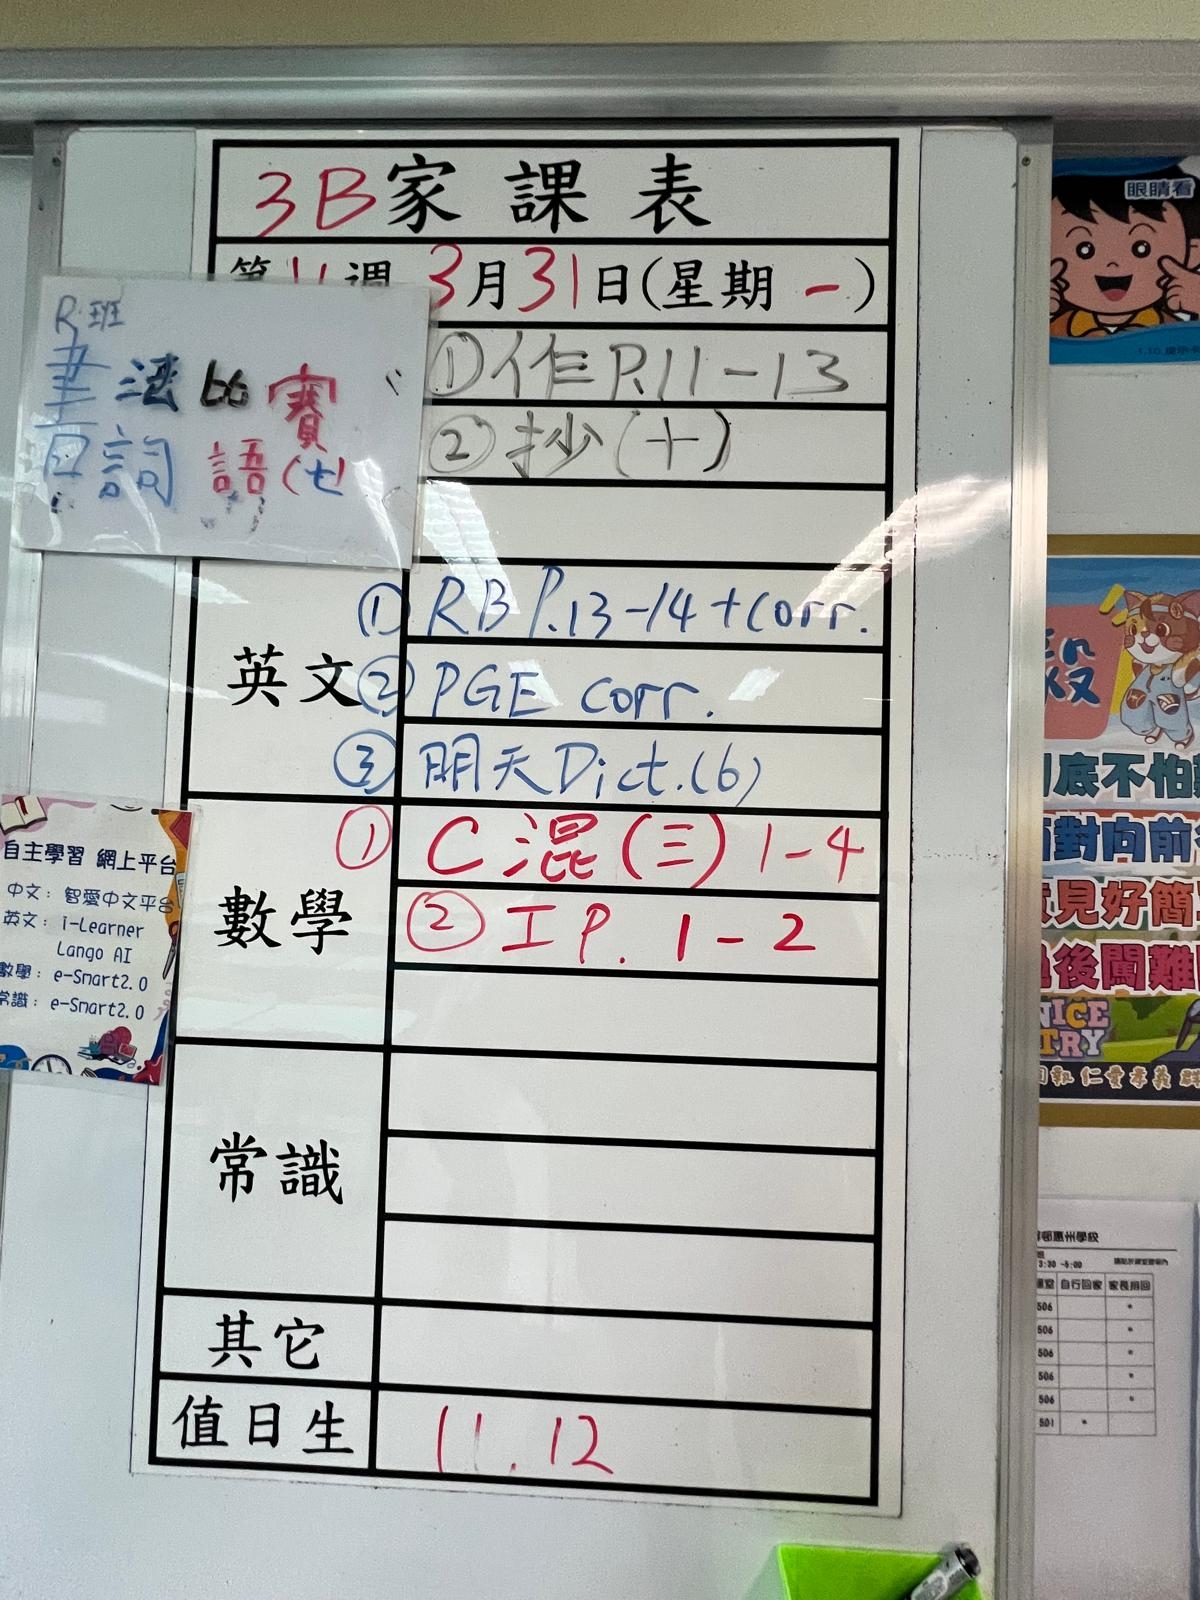 3B家課表
3月31日(星期一)
R班
書法比賽
詞語(七)
①作P.11-13
②抄(十)
英文
①RB P.13-14+corr.
②PGE corr.
③明天Dict.(6)
數學
①C混(三)1-4
②I P. 1-2
常識
其它
值日生
11, 12
自主學習 網上平台
中文: 智愛中文平台
英文: i-Learner
Lango AI
數學: e-Smart2.0
常識: e-Smart2.0
眼睛看
段
底不怕
對向前
見好簡
後闖難
NICE
TRY
仁愛孝義
惠州學校
3:30 -5:00
自行回家 家長接回
506 *
506 *
506 *
506 *
506 *
501 *